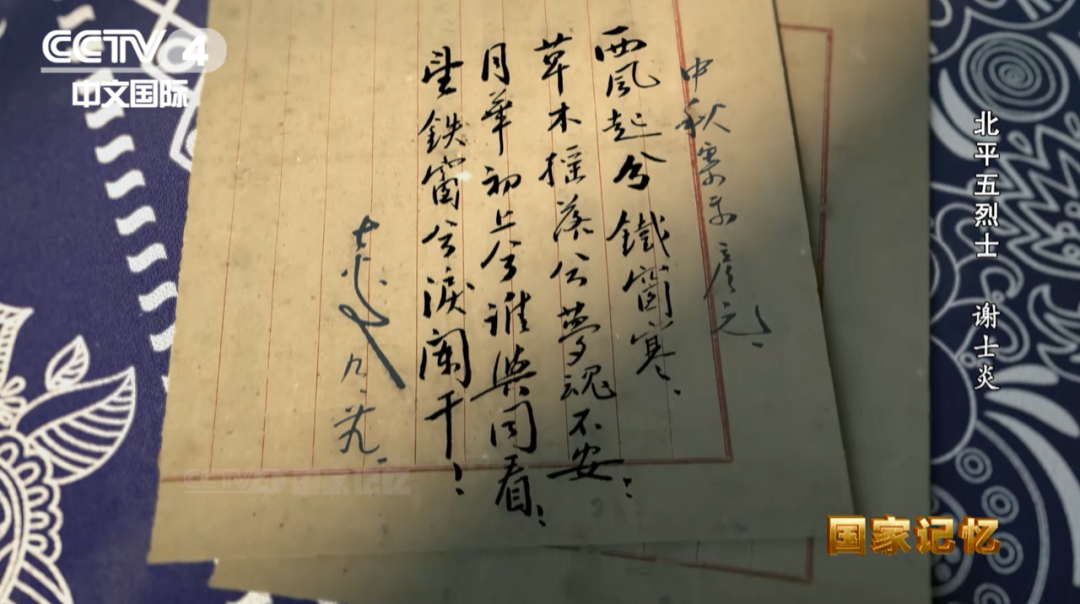 CCTV 4
中文国际
北平五烈士 谢士炎
中秋
西風起兮鐵窗寒、
草木摇落兮夢魂不安；
月華初上兮誰與同看！
望鉄窗兮淚闌干！
士炎
国家记忆